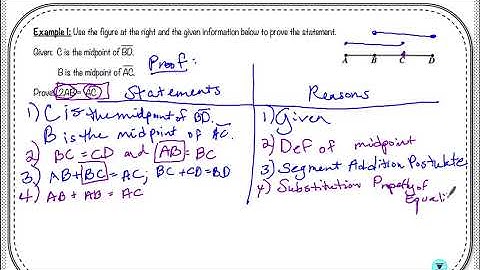 Example 1: Use the figure at the right and the given information below to prove the statement.
Given: C is the midpoint of BD.
B is the midpoint of AC.
Prove: 2AB = AC
A B C D
Proof:
Statements Reasons
1) C is the midpoint of BD. 1) Given
B is the midpoint of AC.
2) BC = CD and AB = BC 2) Def of midpoint
3) AB + BC = AC; BC + CD = BD 3) Segment Addition Postulate
4) AB + AB = AC 4) Substitution Property of
Equali